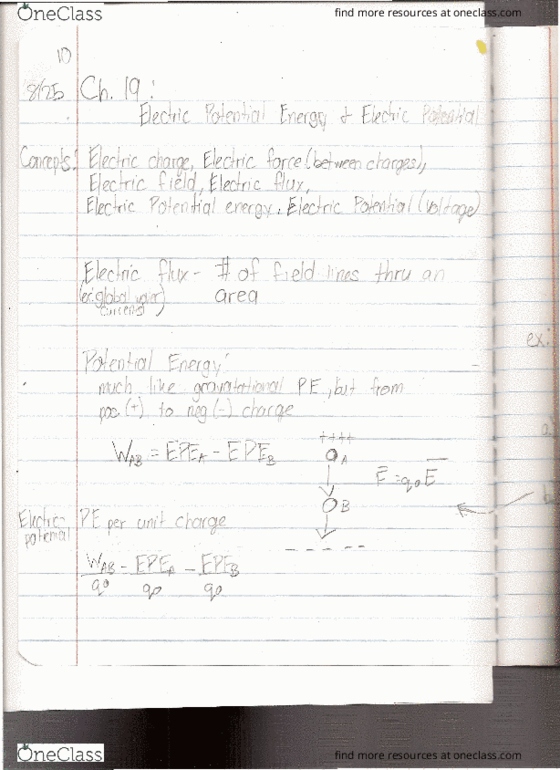 OneClass
find more resources at oneclass.com
10
8/25 Ch. 19:
Electric Potential Energy & Electric Potential
Concepts: Electric charge, Electric force (between charges),
Electric field, Electric flux,
Electric Potential energy, Electric Potential (voltage)
Electric flux - # of field lines thru an
area
(ex: global
Potential Energy:
much like gravatational PE, but from
pos (+) to neg (-) charge
++++
W_AB = EPE_A - EPE_B
A
F = q₀E
B
Electric potential
PE per unit charge
- - - - -
W_AB = EPE_A - EPE_B
q₀ q₀ q₀
ex:
OneClass
find more resources at oneclass.com